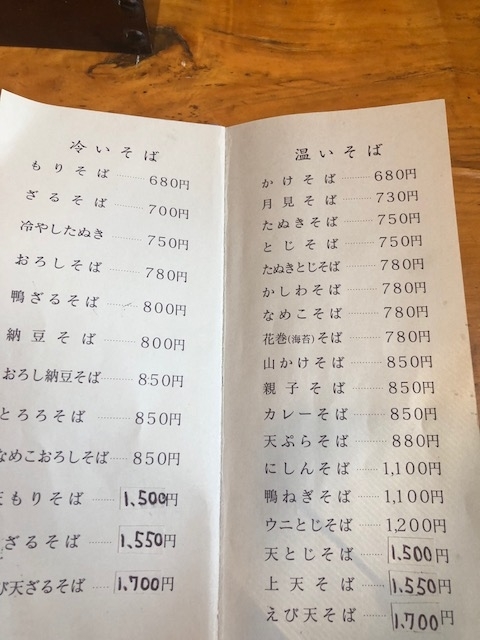 冷いそば
もりそば 680円
ざるそば 700円
冷やしたぬき 750円
おろしそば 780円
鴨ざるそば 800円
納豆そば 800円
おろし納豆そば 850円
とろろそば 850円
なめこおろしそば 850円
天もりそば 1,500円
ざるそば 1,550円
び天ざるそば 1,700円
温いそば
かけそば 680円
月見そば 730円
たぬきそば 750円
とじそば 750円
たぬきとじそば 780円
かしわそば 780円
なめこそば 780円
花巻(海苔)そば 780円
山かけそば 850円
親子そば 850円
カレーそば 850円
天ぷらそば 880円
にしんそば 1,100円
鴨ねぎそば 1,100円
ウニとじそば 1,200円
天とじそば 1,500円
上天そば 1,550円
えび天そば 1,700円